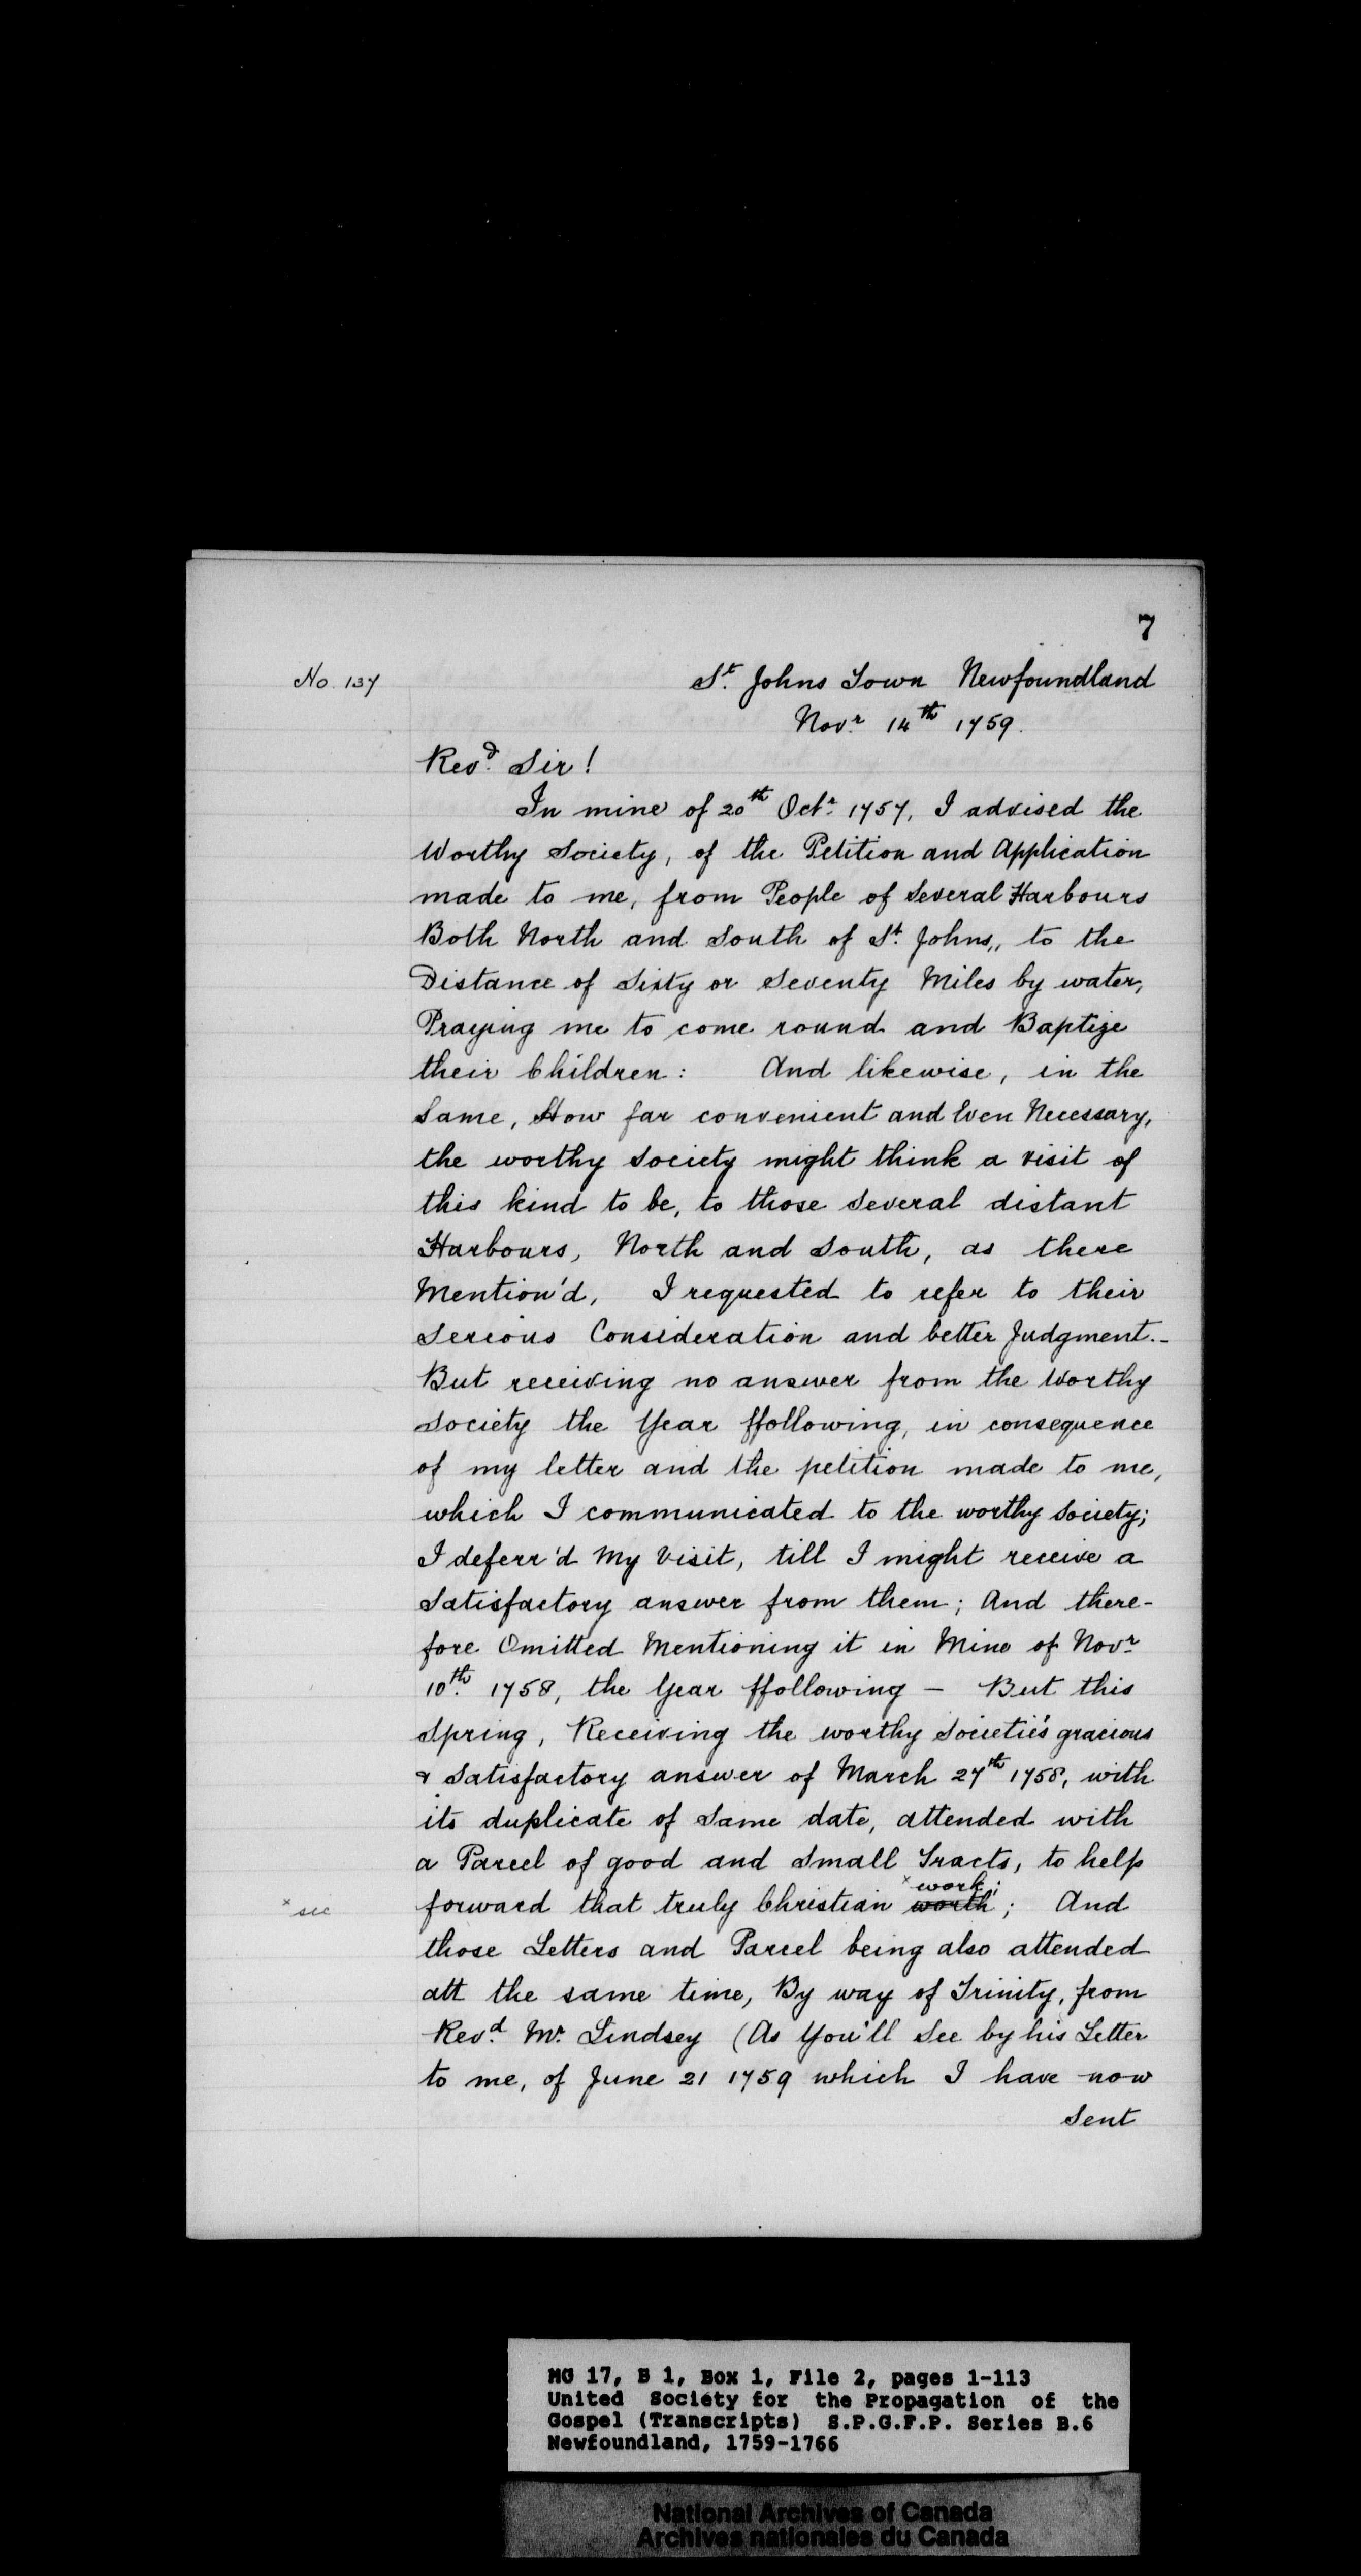 7
No. 137
St. Johns Town Newfoundland
Novr. 14th 1759.
Revd. Sir!
In mine of 20th Octr. 1757, I advised the
Worthy Society, of the Petition and Application
made to me, from People of Several Harbours
Both North and South of St. Johns,, to the
Distance of Sixty or Seventy Miles by water,
Praying me to come round and Baptize
their Children: And likewise, in the
Same, How far convenient and Even Necessary,
the worthy Society might think a visit of
this kind to be, to those Several distant
Harbours, North and South, as there
Mention'd, I requested to refer to their
Serious Consideration and better Judgment.-
But receiving no answer from the Worthy
Society the Year ffollowing, in consequence
of my letter and the petition made to me,
which I communicated to the worthy Society;
I deferr'd My Visit, till I might receive a
Satisfactory answer from them; And there-
fore Omitted Mentioning it in Mine of Novr
10th. 1758, the Year ffollowing - But this
Spring, Receiving the worthy Societie's gracious
& Satisfactory answer of March 27th 1758, with
its duplicate of Same date, attended with
a Parcel of good and Small Tracts, to help
x work;
x sic forward that truly Christian worth; And
those Letters and Parcel being also attended
att the same time, By way of Trinity, from
Revd. Mr. Lindsey (As You'll See by his Letter
to me, of June 21 1759 which I have now
Sent
MG 17, B 1, Box 1, File 2, pages 1-113
United Society for the Propagation of the
Gospel (Transcripts) S.P.G.F.P. Series B.6
Newfoundland, 1759-1766
National Archives of Canada
Archives nationales du Canada